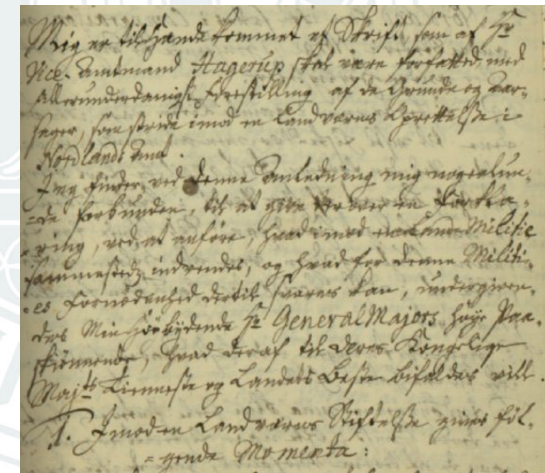 Mig er til hænde kommet et Skrift, som af Hr
Vice-Amtmand Hagerup skal være forfattet, med
Allerunderdanigst Forestilling af de Grunde og Aar-
sager, som stride imod en Landværns Oprettelse i
Nordlands Amt.
Jeg finder, ved denne Anledning mig nogenlun-
-de forbunden, til at give en Forkla-
-ring, ved at anføre, hvad imod Land Militie
sammesteds indvendes, og hvad for denne Militi-
-es Fornødenhed dertil svares kan, undergiven-
des Min Høybydende Hr GeneralMajors høye Paa-
skiønnende, hvad deraf til Deres Kongelige
Majts Tienneste og Landets Beste bifaldes vill.
1. Imod en Landværns Stiftelse gives føl-
-gende Momenta: